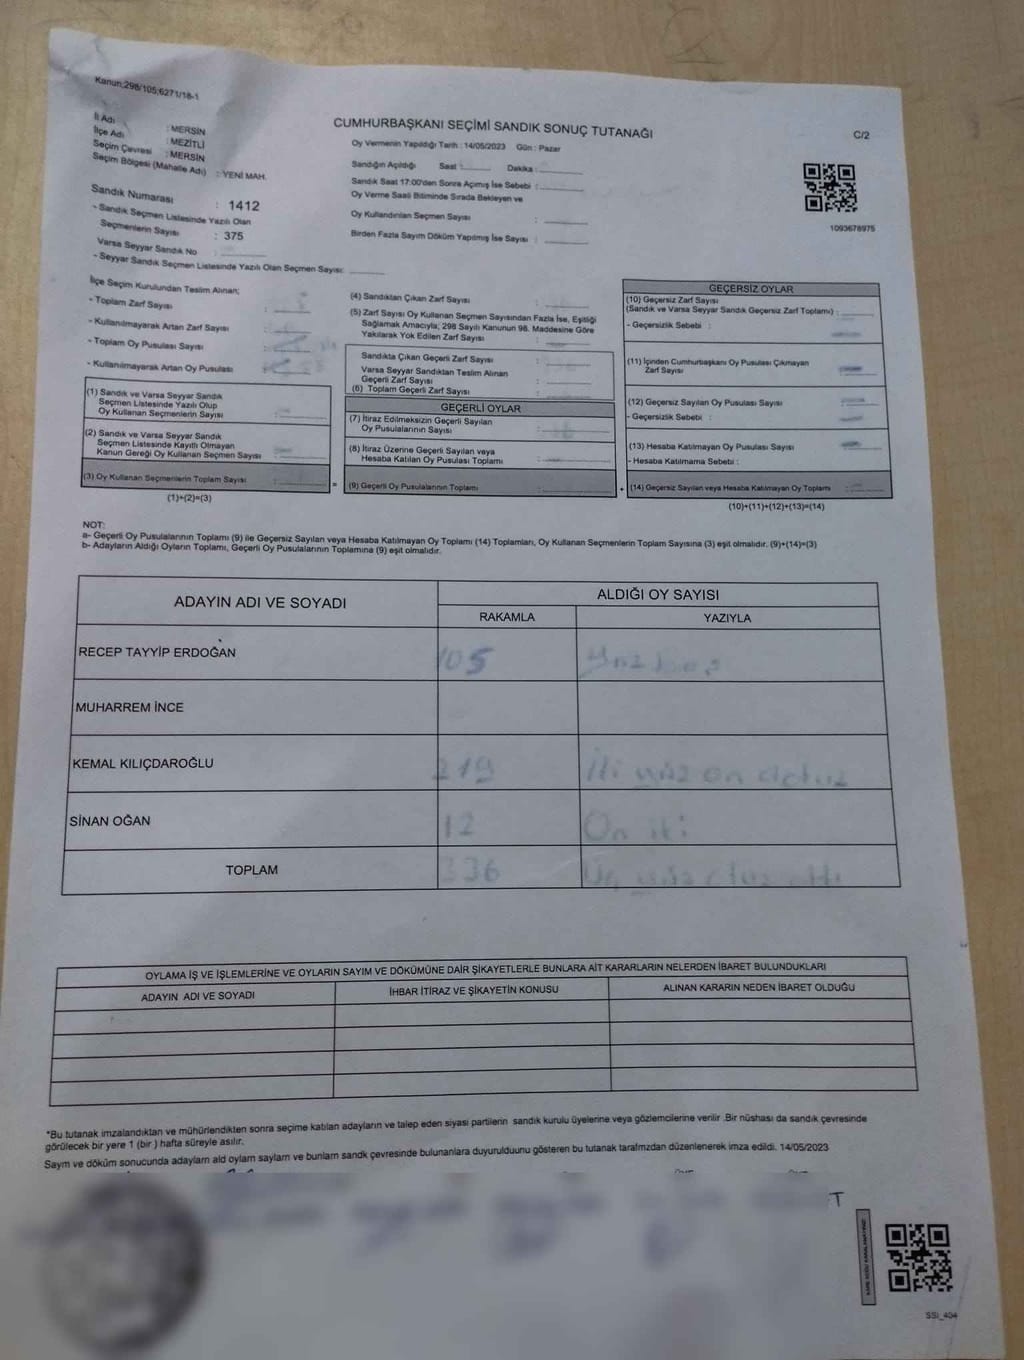 Kanun;298/105;6271/18-1
CUMHURBAŞKANI SEÇİMİ SANDIK SONUÇ TUTANAĞI
C/2
İl Adı : MERSİN
İlçe Adı : MEZİTLİ
Seçim Çevresi : MERSİN
Seçim Bölgesi (Mahalle Adı) : YENİ MAH.
Sandık Numarası : 1412
- Sandık Seçmen Listesinde Yazılı Olan
Seçmenlerin Sayısı : 375
Varsa Seyyar Sandık No :
- Seyyar Sandık Seçmen Listesinde Yazılı Olan Seçmen Sayısı:
Oy Vermenin Yapıldığı Tarih : 14/05/2023 Gün : Pazar
Sandığın Açıldığı Saat : Dakika :
Sandık Saat 17:00'den Sonra Açımış İse Sebebi :
Oy Verme Saati Bitiminde Sırada Bekleyen ve
Oy Kullandırılan Seçmen Sayısı :
Birden Fazla Sayım Döküm Yapılmış İse Sayısı :
1093678975
İlçe Seçim Kurulundan Teslim Alınan;
- Toplam Zarf Sayısı :
- Kullanılmayarak Artan Zarf Sayısı :
- Toplam Oy Pusulası Sayısı :
- Kullanılmayarak Artan Oy Pusulası :
(1) Sandık ve Varsa Seyyar Sandık
Seçmen Listesinde Yazılı Olup
Oy Kullanan Seçmenlerin Sayısı :
(2) Sandık ve Varsa Seyyar Sandık
Seçmen Listesinde Kayıtlı Olmayan
Kanun Gereği Oy Kullanan Seçmen Sayısı :
(3) Oy Kullanan Seçmenlerin Toplam Sayısı :
(1)+(2)=(3)
(4) Sandıktan Çıkan Zarf Sayısı :
(5) Zarf Sayısı Oy Kullanan Seçmen Sayısından Fazla İse, Eşitliği
Sağlamak Amacıyla; 298 Sayılı Kanunun 98. Maddesine Göre
Yakılarak Yok Edilen Zarf Sayısı :
Sandıkta Çıkan Geçerli Zarf Sayısı :
Varsa Seyyar Sandıktan Teslim Alınan
Geçerli Zarf Sayısı :
(6) Toplam Geçerli Zarf Sayısı :
GEÇERLİ OYLAR
(7) İtiraz Edilmeksizin Geçerli Sayılan
Oy Pusulalarının Sayısı :
(8) İtiraz Üzerine Geçerli Sayılan veya
Hesaba Katılan Oy Pusulası Toplamı :
= (9) Geçerli Oy Pusulalarının Toplamı :
GEÇERSİZ OYLAR
(10) Geçersiz Zarf Sayısı
(Sandık ve Varsa Seyyar Sandık Geçersiz Zarf Toplamı) :
- Geçersizlik Sebebi :
(11) İçinden Cumhurbaşkanı Oy Pusulası Çıkmayan
Zarf Sayısı :
(12) Geçersiz Sayılan Oy Pusulası Sayısı :
- Geçersizlik Sebebi :
(13) Hesaba Katılmayan Oy Pusulası Sayısı :
- Hesaba Katılmama Sebebi :
+ (14) Geçersiz Sayılan veya Hesaba Katılmayan Oy Toplamı :
(10)+(11)+(12)+(13)=(14)
NOT:
a- Geçerli Oy Pusulalarının Toplamı (9) ile Geçersiz Sayılan veya Hesaba Katılmayan Oy Toplamı (14) Toplamları, Oy Kullanan Seçmenlerin Toplam Sayısına (3) eşit olmalıdır. (9)+(14)=(3)
b- Adayların Aldığı Oyların Toplamı, Geçerli Oy Pusulalarının Toplamına (9) eşit olmalıdır.
ADAYIN ADI VE SOYADI
ALDIĞI OY SAYISI
RAKAMLA YAZIYLA
RECEP TAYYİP ERDOĞAN 105 yüz beş
MUHARREM İNCE
KEMAL KILIÇDAROĞLU 219 iki yüz on dokuz
SİNAN OĞAN 12 On iki
TOPLAM 336 Üç yüz otuz altı
OYLAMA İŞ VE İŞLEMLERİNE VE OYLARIN SAYIM VE DÖKÜMÜNE DAİR ŞİKAYETLERLE BUNLARA AİT KARARLARIN NELERDEN İBARET BULUNDUKLARI
ADAYIN ADI VE SOYADI İHBAR İTİRAZ VE ŞİKAYETİN KONUSU ALINAN KARARIN NEDEN İBARET OLDUĞU
*Bu tutanak imzalandıktan ve mühürlendikten sonra seçime katılan adayların ve talep eden siyasi partilerin sandık kurulu üyelerine veya gözlemcilerine verilir .Bir nüshası da sandık çevresinde
görülecek bir yere 1 (bir ) hafta süreyle asılır.
Sayım ve döküm sonucunda adayların ald oyların sayların ve bunların sandk çevresinde bulunanlara duyurulduunu gösteren bu tutanak tarafmzdan düzenlenerek imza edildi. 14/05/2023
T
SSI_404